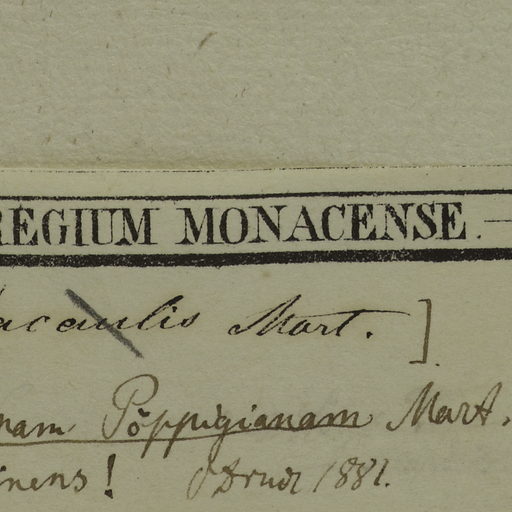 REGIUM MONACENSE.
acaulis Mart. ]
nam Pöppigianam Mart.
inens! Drude 1881.